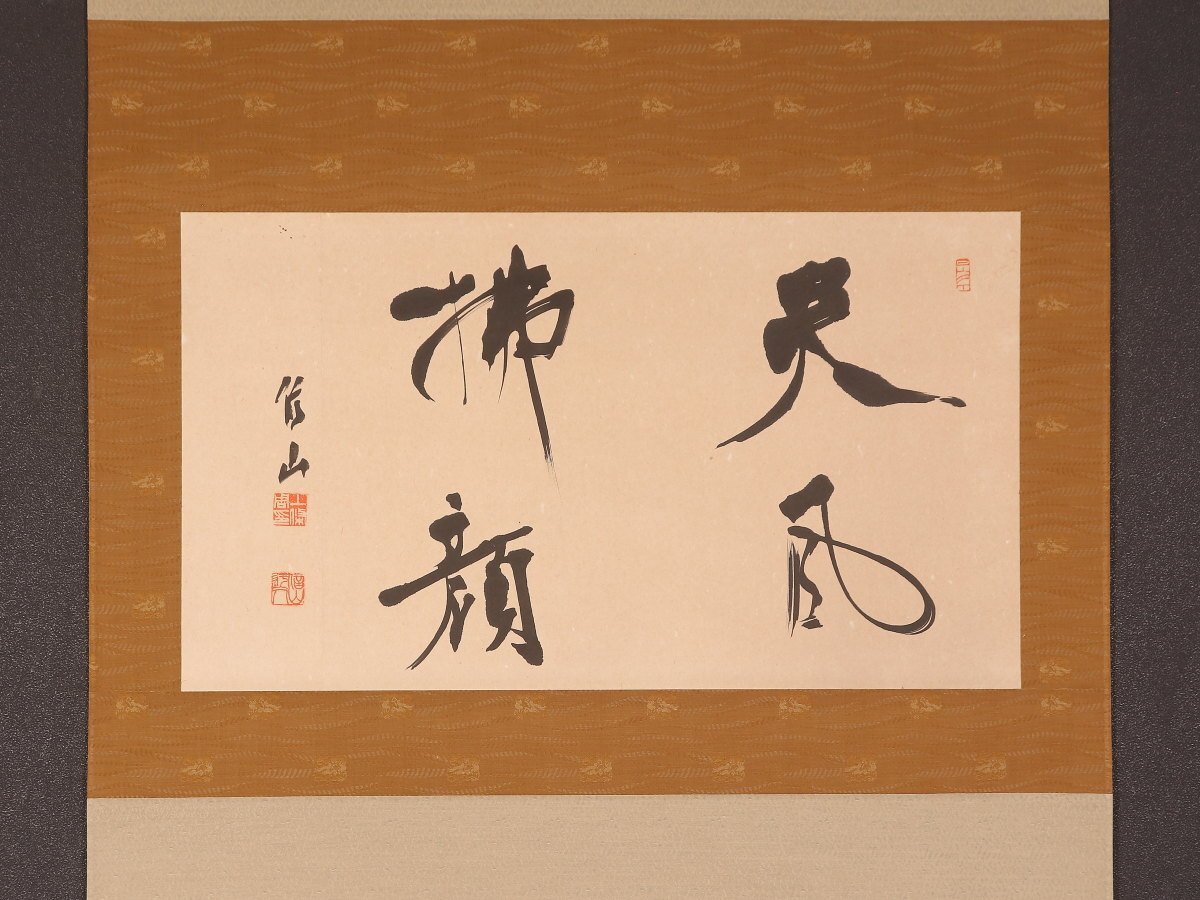 天風
拂顔
信山